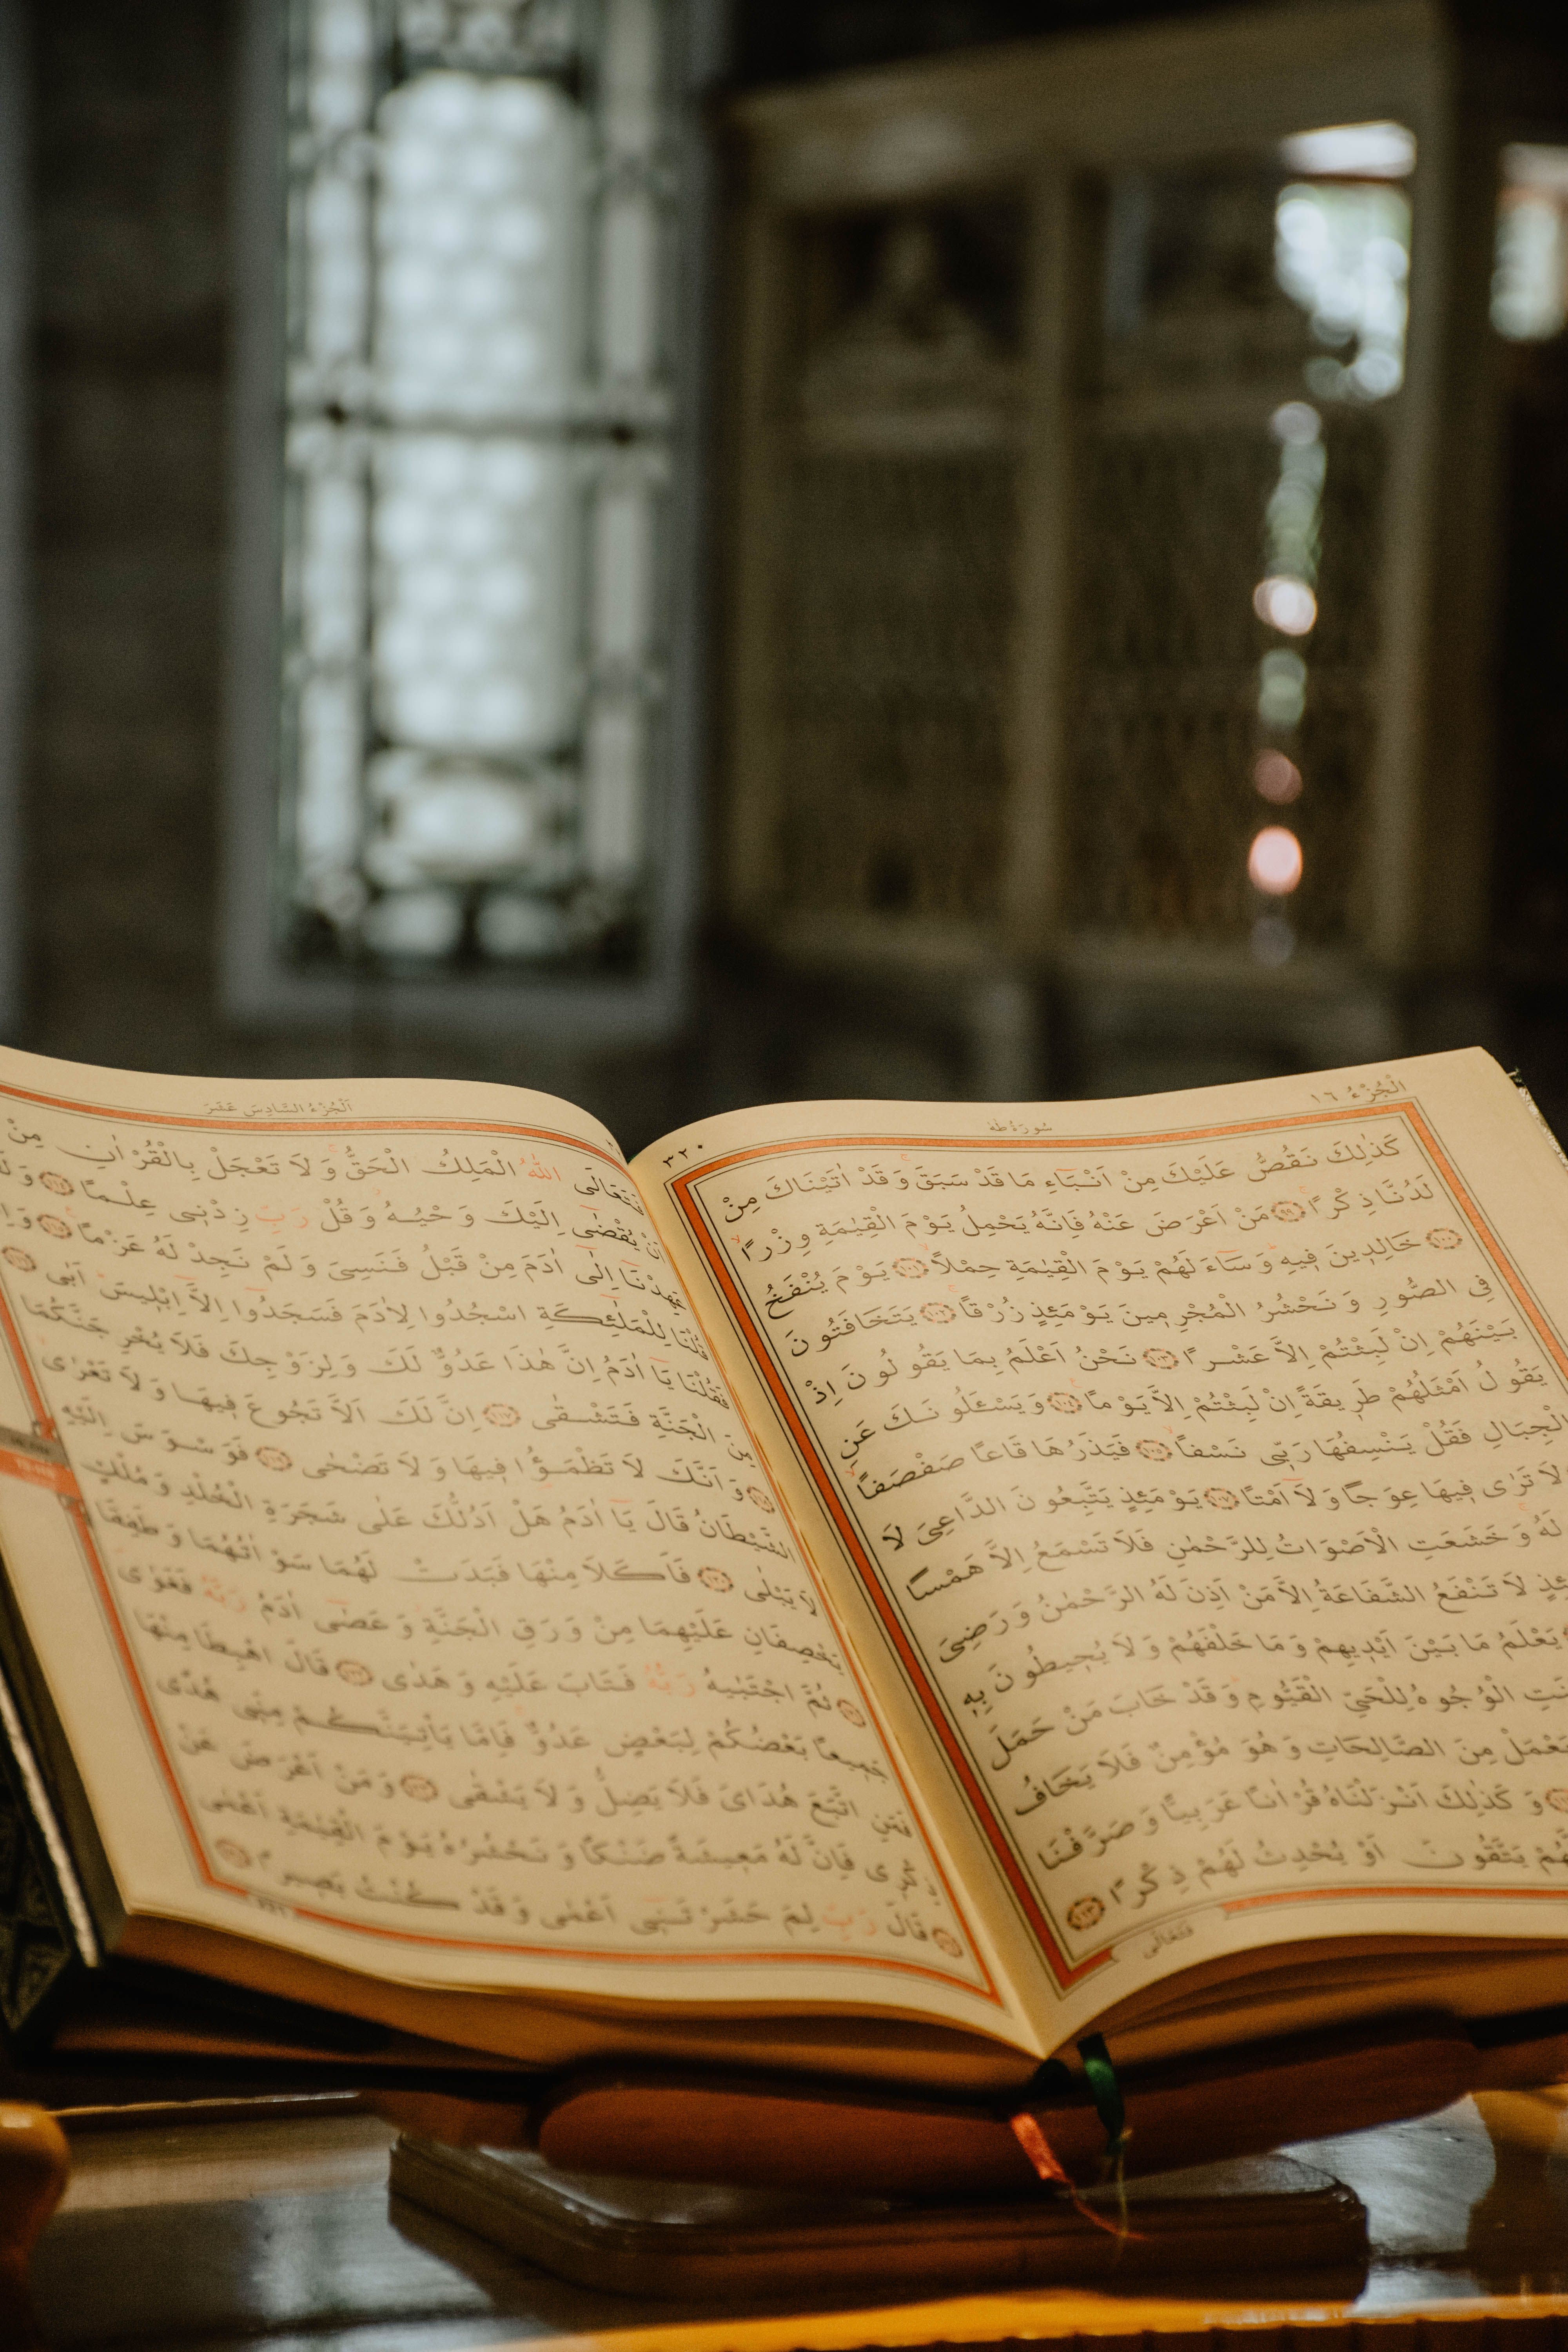 الْجُزْءُ ١٦
سُورَةُ طٰهٰ
٣٢٠
كَذٰلِكَ نَقُصُّ عَلَيْكَ مِنْ اَنْبَاءِ مَا قَدْ سَبَقَ وَقَدْ اٰتَيْنَاكَ مِنْ
لَدُنَّا ذِكْرًا ﴿٩٩﴾ مَنْ اَعْرَضَ عَنْهُ فَاِنَّهُ يَحْمِلُ يَوْمَ الْقِيٰمَةِ وِزْرًا
﴿١٠٠﴾ خَالِدِينَ فِيهِ وَسَاءَ لَهُمْ يَوْمَ الْقِيٰمَةِ حِمْلاً ﴿١٠١﴾ يَوْمَ يُنْفَخُ
فِي الصُّورِ وَنَحْشُرُ الْمُجْرِمِينَ يَوْمَئِذٍ زُرْقًا ﴿١٠٢﴾ يَتَخَافَتُونَ
بَيْنَهُمْ اِنْ لَبِثْتُمْ اِلاَّ عَشْرًا ﴿١٠٣﴾ نَحْنُ اَعْلَمُ بِمَا يَقُولُونَ اِذْ
يَقُولُ اَمْثَلُهُمْ طَرِيقَةً اِنْ لَبِثْتُمْ اِلاَّ يَوْمًا ﴿١٠٤﴾ وَيَسْـَٔلُونَكَ عَنِ
الْجِبَالِ فَقُلْ يَنْسِفُهَا رَبِّي نَسْفًا ﴿١٠٥﴾ فَيَذَرُهَا قَاعًا صَفْصَفًا
لاَ تَرٰى فِيهَا عِوَجًا وَلاَ اَمْتًا ﴿١٠٧﴾ يَوْمَئِذٍ يَتَّبِعُونَ الدَّاعِيَ لاَ
لَهُ وَخَشَعَتِ الْاَصْوَاتُ لِلرَّحْمٰنِ فَلاَ تَسْمَعُ اِلاَّ هَمْسًا
لاَ تَنْفَعُ الشَّفَاعَةُ اِلاَّ مَنْ اَذِنَ لَهُ الرَّحْمٰنُ وَرَضِيَ
يَعْلَمُ مَا بَيْنَ اَيْدِيهِمْ وَمَا خَلْفَهُمْ وَلاَ يُحِيطُونَ بِهِ
الْوُجُوهُ لِلْحَيِّ الْقَيُّومِ وَقَدْ خَابَ مَنْ حَمَلَ
يَعْمَلْ مِنَ الصَّالِحَاتِ وَهُوَ مُؤْمِنٌ فَلاَ يَخَافُ
وَكَذٰلِكَ اَنْزَلْنَاهُ قُرْاٰنًا عَرَبِيًّا وَصَرَّفْنَا
يَتَّقُونَ اَوْ يُحْدِثُ لَهُمْ ذِكْرًا ﴿١١٣﴾
فَتَعَالَى
اَلْجُزْءُ السَّادِسَ عَشَرَ
فَتَعَالَى اللّٰهُ الْمَلِكُ الْحَقُّ وَلاَ تَعْجَلْ بِالْقُرْاٰنِ مِنْ
اَنْ يُقْضٰى اِلَيْكَ وَحْيُهُ وَقُلْ رَبِّ زِدْنِي عِلْمًا ﴿١١٤﴾
عَهِدْنَا اِلٰى اٰدَمَ مِنْ قَبْلُ فَنَسِيَ وَلَمْ نَجِدْ لَهُ عَزْمًا ﴿١١٥﴾
قُلْنَا لِلْمَلٰئِكَةِ اسْجُدُوا لِاٰدَمَ فَسَجَدُوا اِلاَّ اِبْلِيسَ اَبٰى ﴿١١٦﴾
فَقُلْنَا يَا اٰدَمُ اِنَّ هٰذَا عَدُوٌّ لَكَ وَلِزَوْجِكَ فَلاَ يُخْرِجَنَّكُمَا
مِنَ الْجَنَّةِ فَتَشْقٰى ﴿١١٧﴾ اِنَّ لَكَ اَلاَّ تَجُوعَ فِيهَا وَلاَ تَعْرٰى
﴿١١٨﴾ وَاَنَّكَ لاَ تَظْمَؤُا فِيهَا وَلاَ تَضْحٰى ﴿١١٩﴾ فَوَسْوَسَ اِلَيْهِ
الشَّيْطَانُ قَالَ يَا اٰدَمُ هَلْ اَدُلُّكَ عَلٰى شَجَرَةِ الْخُلْدِ وَمُلْكٍ
لاَ يَبْلٰى ﴿١٢٠﴾ فَاَكَلاَ مِنْهَا فَبَدَتْ لَهُمَا سَوْاٰتُهُمَا وَطَفِقَا
يَخْصِفَانِ عَلَيْهِمَا مِنْ وَرَقِ الْجَنَّةِ وَعَصٰى اٰدَمُ رَبَّهُ فَغَوٰى
﴿١٢١﴾ ثُمَّ اجْتَبٰيهُ رَبُّهُ فَتَابَ عَلَيْهِ وَهَدٰى ﴿١٢٢﴾ قَالَ اهْبِطَا مِنْهَا
جَمِيعًا بَعْضُكُمْ لِبَعْضٍ عَدُوٌّ فَاِمَّا يَأْتِيَنَّكُمْ مِنِّي هُدًى
فَمَنِ اتَّبَعَ هُدَايَ فَلاَ يَضِلُّ وَلاَ يَشْقٰى ﴿١٢٣﴾ وَمَنْ اَعْرَضَ عَنْ
ذِكْرِي فَاِنَّ لَهُ مَعِيشَةً ضَنْكًا وَنَحْشُرُهُ يَوْمَ الْقِيٰمَةِ اَعْمٰى
﴿١٢٤﴾ قَالَ رَبِّ لِمَ حَشَرْتَنِي اَعْمٰى وَقَدْ كُنْتُ بَصِيرًا ﴿١٢٥﴾